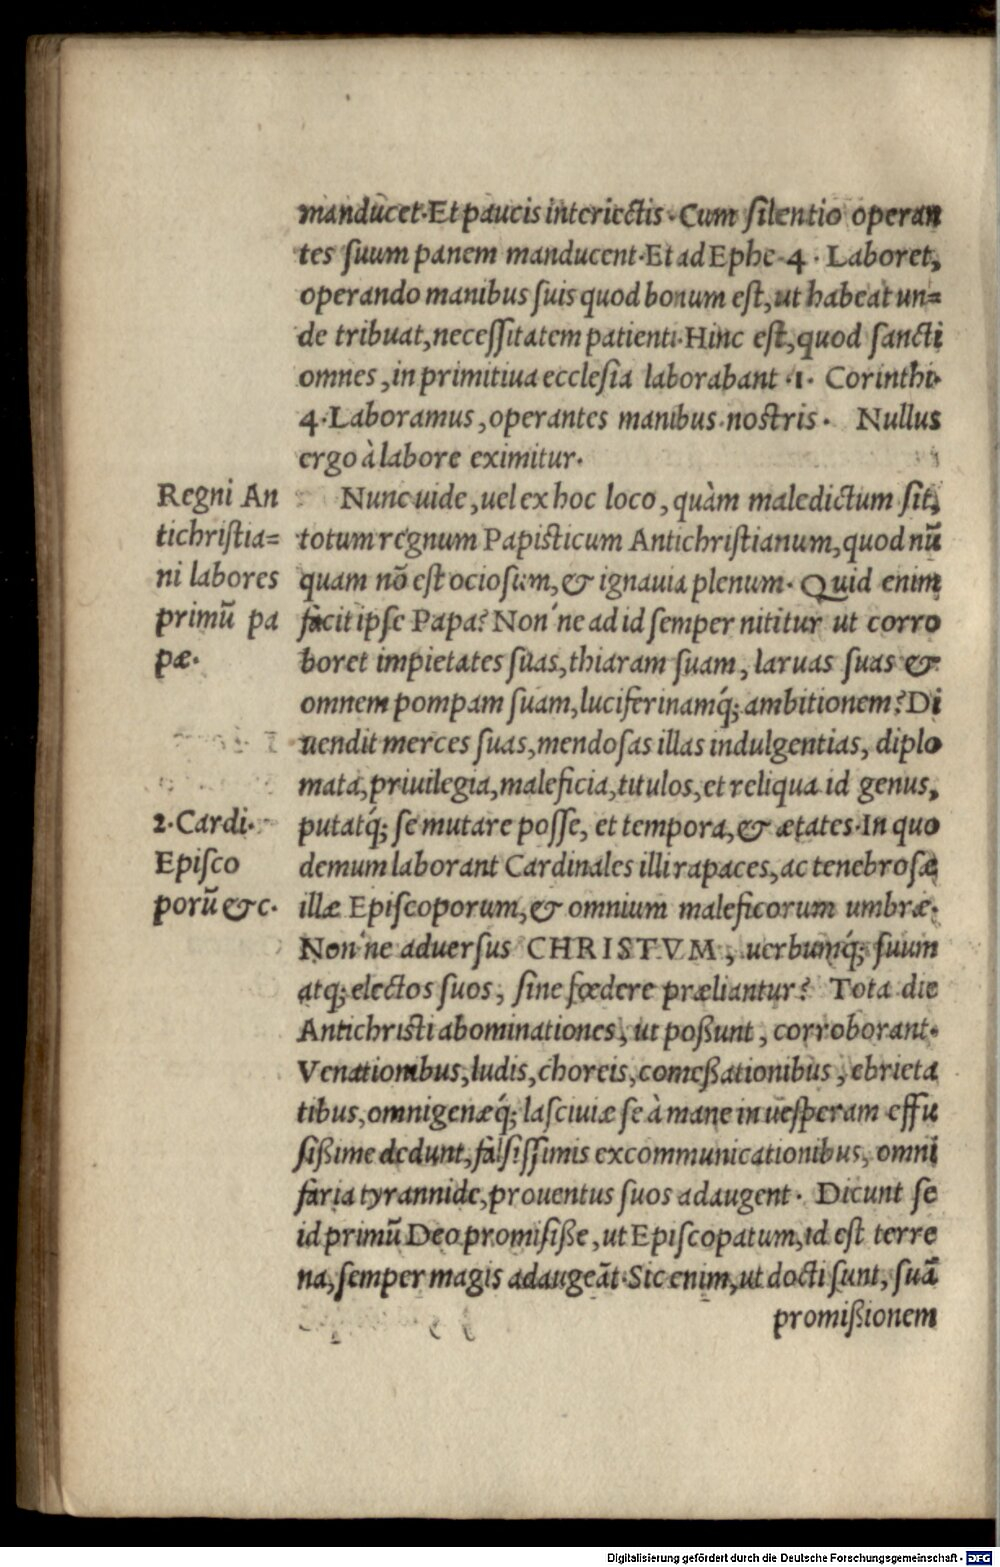 manducet. Et paucis interiectis. Cum silentio operan
tes suum panem manducent. Et ad Ephe. 4. Laboret,
operando manibus suis quod bonum est, ut habeat un=
de tribuat, necessitatem patienti. Hinc est, quod sancti
omnes, in primitiua ecclesia laborabant. 1. Corinthi.
4. Laboramus, operantes manibus nostris. Nullus
ergo à labore eximitur.
Regni An
tichristia=
ni labores
primũ pa
pæ.
Nunc uide, uel ex hoc loco, quàm maledictum sit,
totum regnum Papisticum Antichristianum, quod nũ
quam nõ est ociosum, & ignauia plenum. Quid enim
facit ipse Papa? Non'ne ad id semper nititur ut corro
boret impietates suas, thiaram suam, laruas suas &
omnem pompam suam, luciferinamq́; ambitionem? Di
uendit merces suas, mendosas illas indulgentias, diplo
mata, priuilegia, maleficia, titulos, et reliqua id genus,
putatq́; se mutare posse, et tempora, & ætates. In quo
2. Cardi.
Episco
porũ &c.
demum laborant Cardinales illi rapaces, ac tenebrosæ
illæ Episcoporum, & omnium maleficorum umbræ.
Non'ne aduersus CHRISTVM, uerbumq́; suum
atq; electos suos, sine fœdere præliantur? Tota die
Antichristi abominationes, ut possunt, corroborant.
Venationibus, ludis, choreis, comeßationibus, ebrieta
tibus, omnigenæq́; lasciuiæ se à mane in uesperam effu
sißime dedunt, falsissimis excommunicationibus, omni
faria tyrannide, prouentus suos adaugent. Dicunt se
id primũ Deo promisiße, ut Episcopatum, id est terre
na, semper magis adaugeãt. Sic enim, ut docti sunt, suã
promißionem
Digitalisierung gefördert durch die Deutsche Forschungsgemeinschaft - DFG